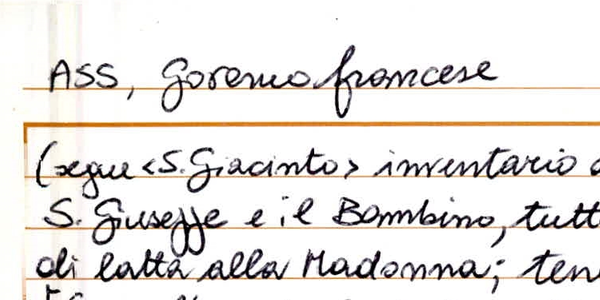 ASS, Governo francese
(segue <S. Giacinto> inventario
S. Giuseppe e il Bambino, tutt
di latta alla Madonna; ten